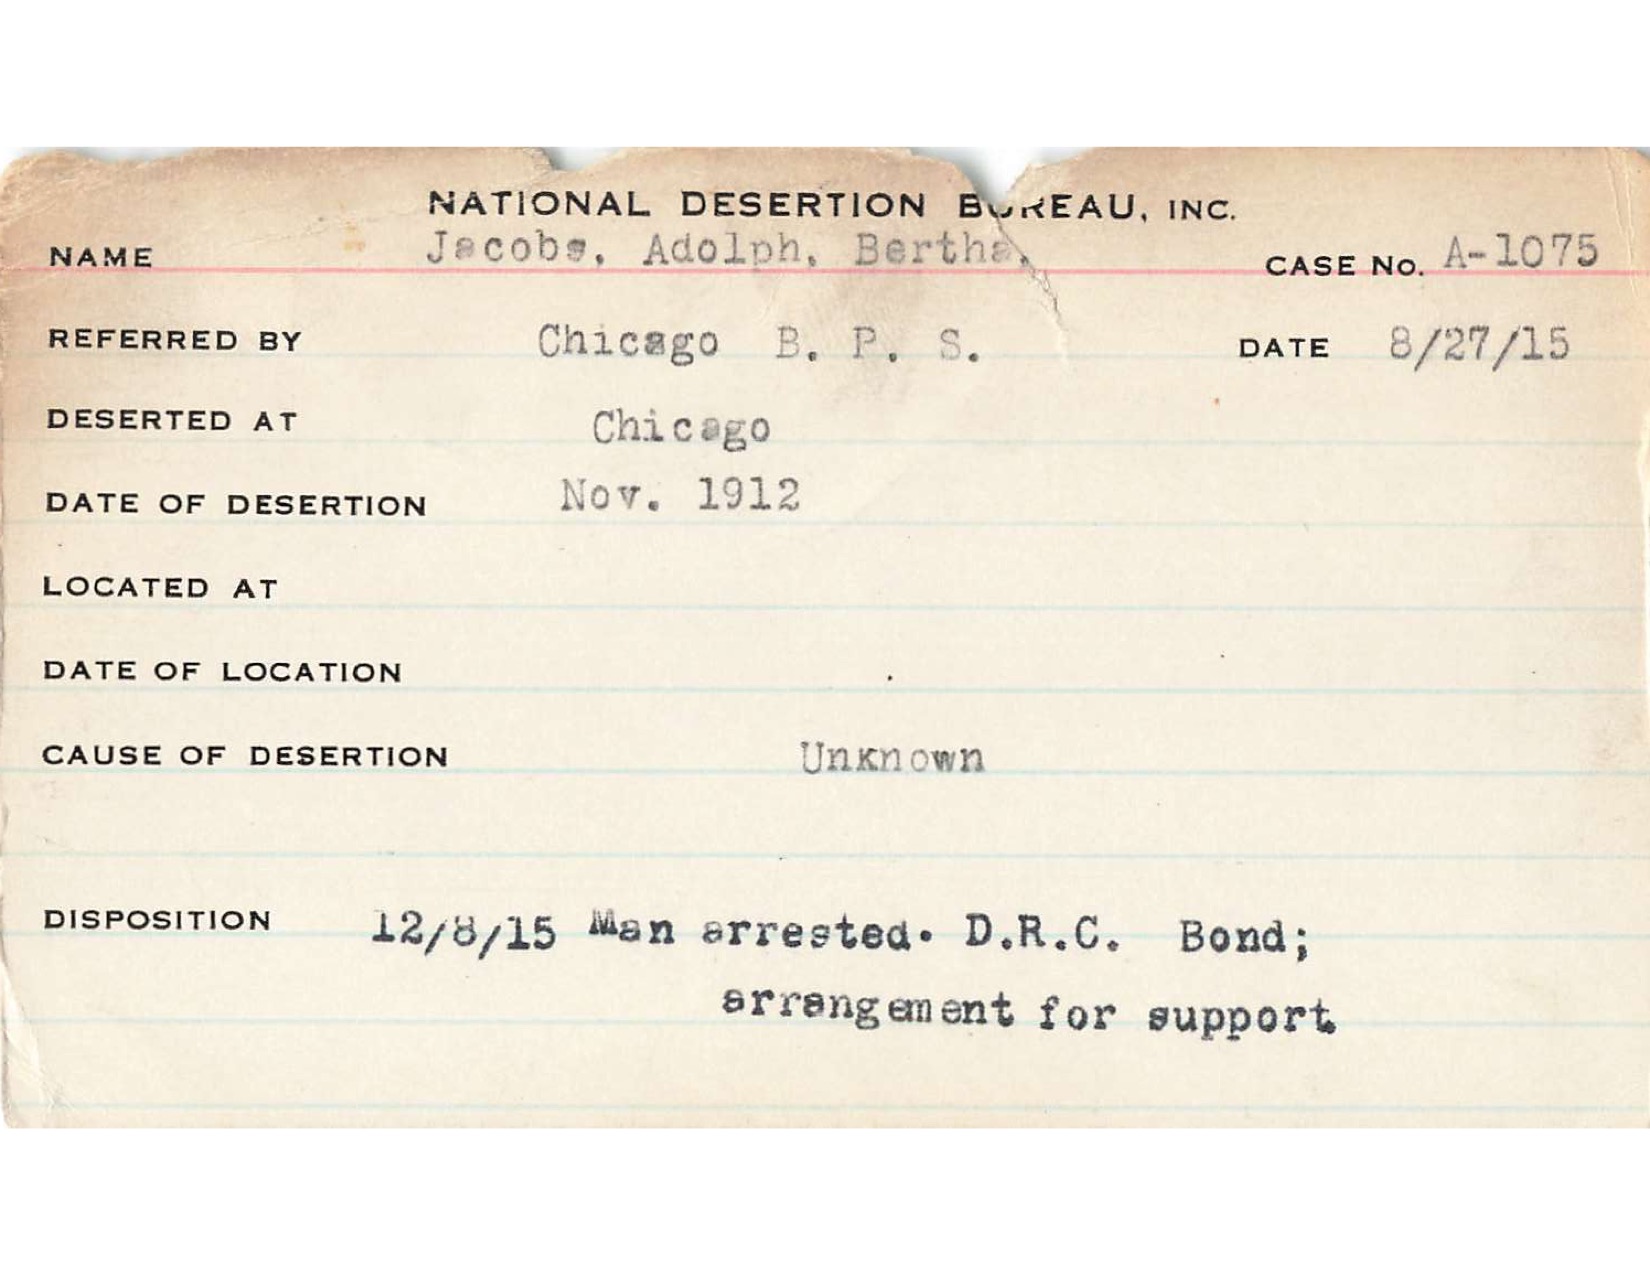 NATIONAL DESERTION BUREAU, INC.
NAME Jacobs, Adolph, Bertha, CASE No. A-1075
REFERRED BY Chicago B. P. S. DATE 8/27/15
DESERTED AT Chicago
DATE OF DESERTION Nov. 1912
LOCATED AT
DATE OF LOCATION
CAUSE OF DESERTION Unknown
DISPOSITION 12/8/15 Man arrested. D.R.C. Bond;
arrangement for support.